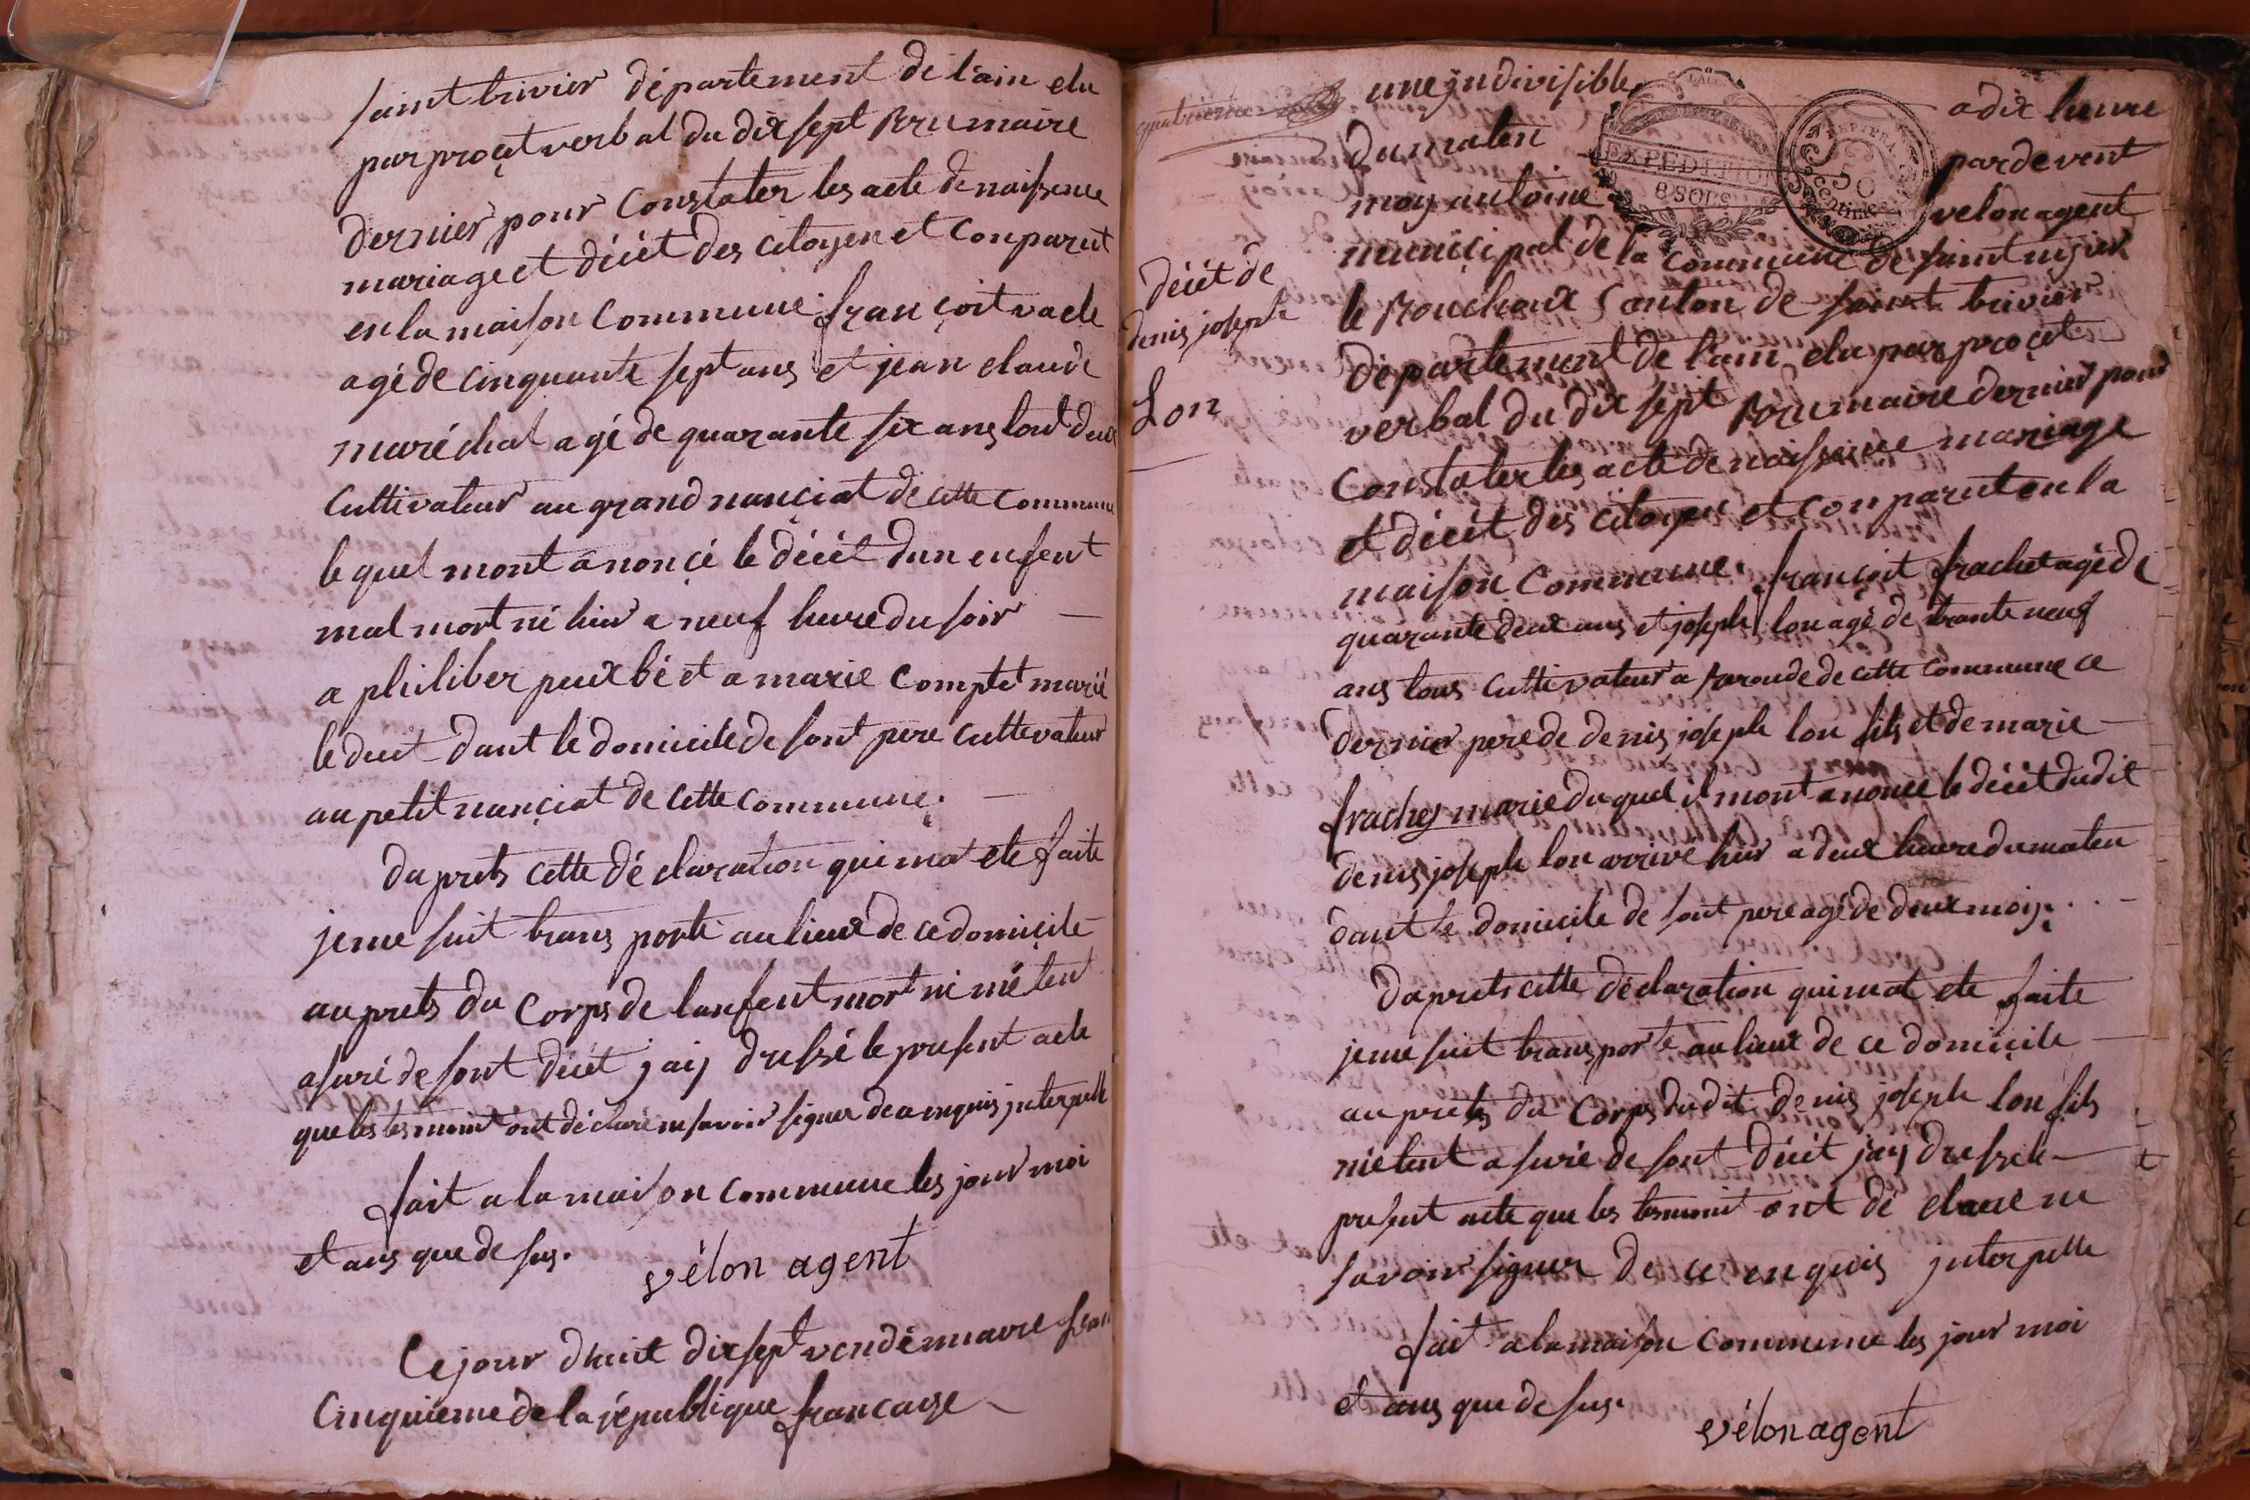 saint trivier département de l'ain elu
par proçet verbal du dix sept Brumaire
dernier pour Constater les acte de naissence
mariage et décét des citoyen et Conparut
en la maison Commune. françoit vacle
agé de cinquante sept ans et jean claude
maréchal agé de quarante six ans tout deux
Cultivateur au grand nançiat de cette Commune
lequel mont anonçé le décét dun enfent
mal mort né hier a neuf heure du soir
a philiber peuxbé et a marie Comptet marié
le duit dant le domicile de sont pere Cultevateur
au petit nançiat de Cette Commune.
daprets cette déclaration qui mat ete faite
je me suit trans porté au lieux de ce domiçile
auprets du Corps de lanfent mort né mé tent
asuré de sont décét jaij dressé le present acte
que les tesmoint ont déclaré ne savoir signer de ce enquis jnterpelle
fait a la maison commune les jour moi
et ans que de sus.
vélon agent
Ce jour dhuit dix sept vendémiaire
Cinquieme de la république françaize
quatrieme
une jndivisible
a dix heure
du maten
pardevent
moy antoine
velon agent
EXPEDITION
8 SOLS
50
Centimes
municipal de la Commune de saint nizier
le Bouchoux Canton de saint trivier
département de l'ain elu par proçet
verbal du dix sept Brumaire dernier pour
Constater les acte de naissence mariage
et décét des citoyen et Conparut en la
maison Commune. françoit frachet agé de
quarante deux ans et joseph lon agé de trante neuf
ans tous Cultivateur a Baroude de cette Commune ce
dernier pere de denis joseph lon fils et de marie
frachey marie du quel il mont anoncé le décét dudit
denis joseph lon arrivé hier a deux heure du maten
dant le domiçile de sont pere agé de deux mois. . . -
daprets cette déclaration qui mat ete faite
je me suit trans porté au lieux de ce domiçile
auprets du Corps dudit denis joseph lon fils
mé tent asuré de sont décét jaij dressé le
present acte que les tesmoint ont dé claré ne
savoir signer de ce enquis jnterpelle
fait a la maison Commune les jour moi
et ans que de sus.
vélon agent
décét de
denis joseph
Lon